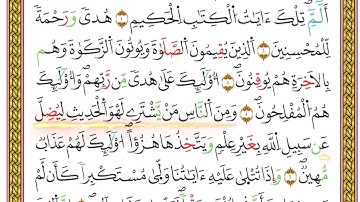 الٓمٓ ۝١ تِلْكَ ءَايَٰتُ ٱلْكِتَٰبِ ٱلْحَكِيمِ ۝٢ هُدًى وَرَحْمَةً
لِّلْمُحْسِنِينَ ۝٣ ٱلَّذِينَ يُقِيمُونَ ٱلصَّلَوٰةَ وَيُؤْتُونَ ٱلزَّكَوٰةَ وَهُم
بِٱلْءَاخِرَةِ هُمْ يُوقِنُونَ ۝٤ أُو۟لَٰٓئِكَ عَلَىٰ هُدًى مِّن رَّبِّهِمْ ۖ وَأُو۟لَٰٓئِكَ
هُمُ ٱلْمُفْلِحُونَ ۝٥ وَمِنَ ٱلنَّاسِ مَن يَشْتَرِى لَهْوَ ٱلْحَدِيثِ لِيُضِلَّ
عَن سَبِيلِ ٱللَّهِ بِغَيْرِ عِلْمٍ وَيَتَّخِذَهَا هُزُوًا ۚ أُو۟لَٰٓئِكَ لَهُمْ عَذَابٌ
مُّهِينٌ ۝٦ وَإِذَا تُتْلَىٰ عَلَيْهِ ءَايَٰتُنَا وَلَّىٰ مُسْتَكْبِرًا كَأَن لَّمْ